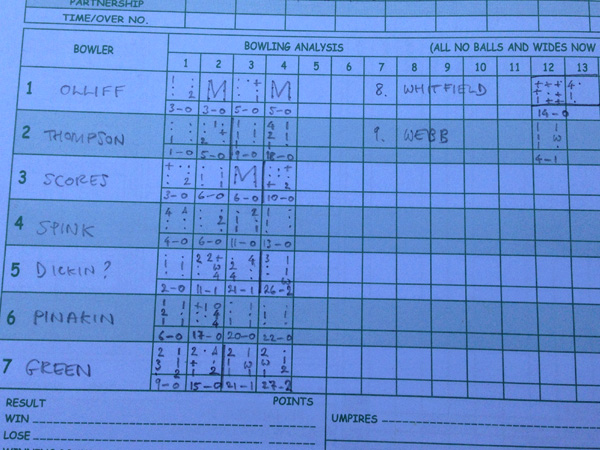 PARTNERSHIP
TIME/OVER NO.
BOWLER BOWLING ANALYSIS (ALL NO BALLS AND WIDES NOW
1 2 3 4 5 6 7 8 9 10 11 12 13
1 OLLIFF M M 8. WHITFIELD
3-0 3-0 5-0 5-0 14-0
2 THOMPSON 9. WEBB
1-0 5-0 9-0 18-0 4-1
3 SCORES M
3-0 6-0 6-0 10-0
4 SPINK
4-0 6-0 11-0 13-0
5 DICKIN?
2-0 11-1 21-1 26-2
6 PINAKIN
6-0 17-0 20-0 22-0
7 GREEN
9-0 15-0 21-1 27-2
RESULT POINTS
WIN UMPIRES
LOSE